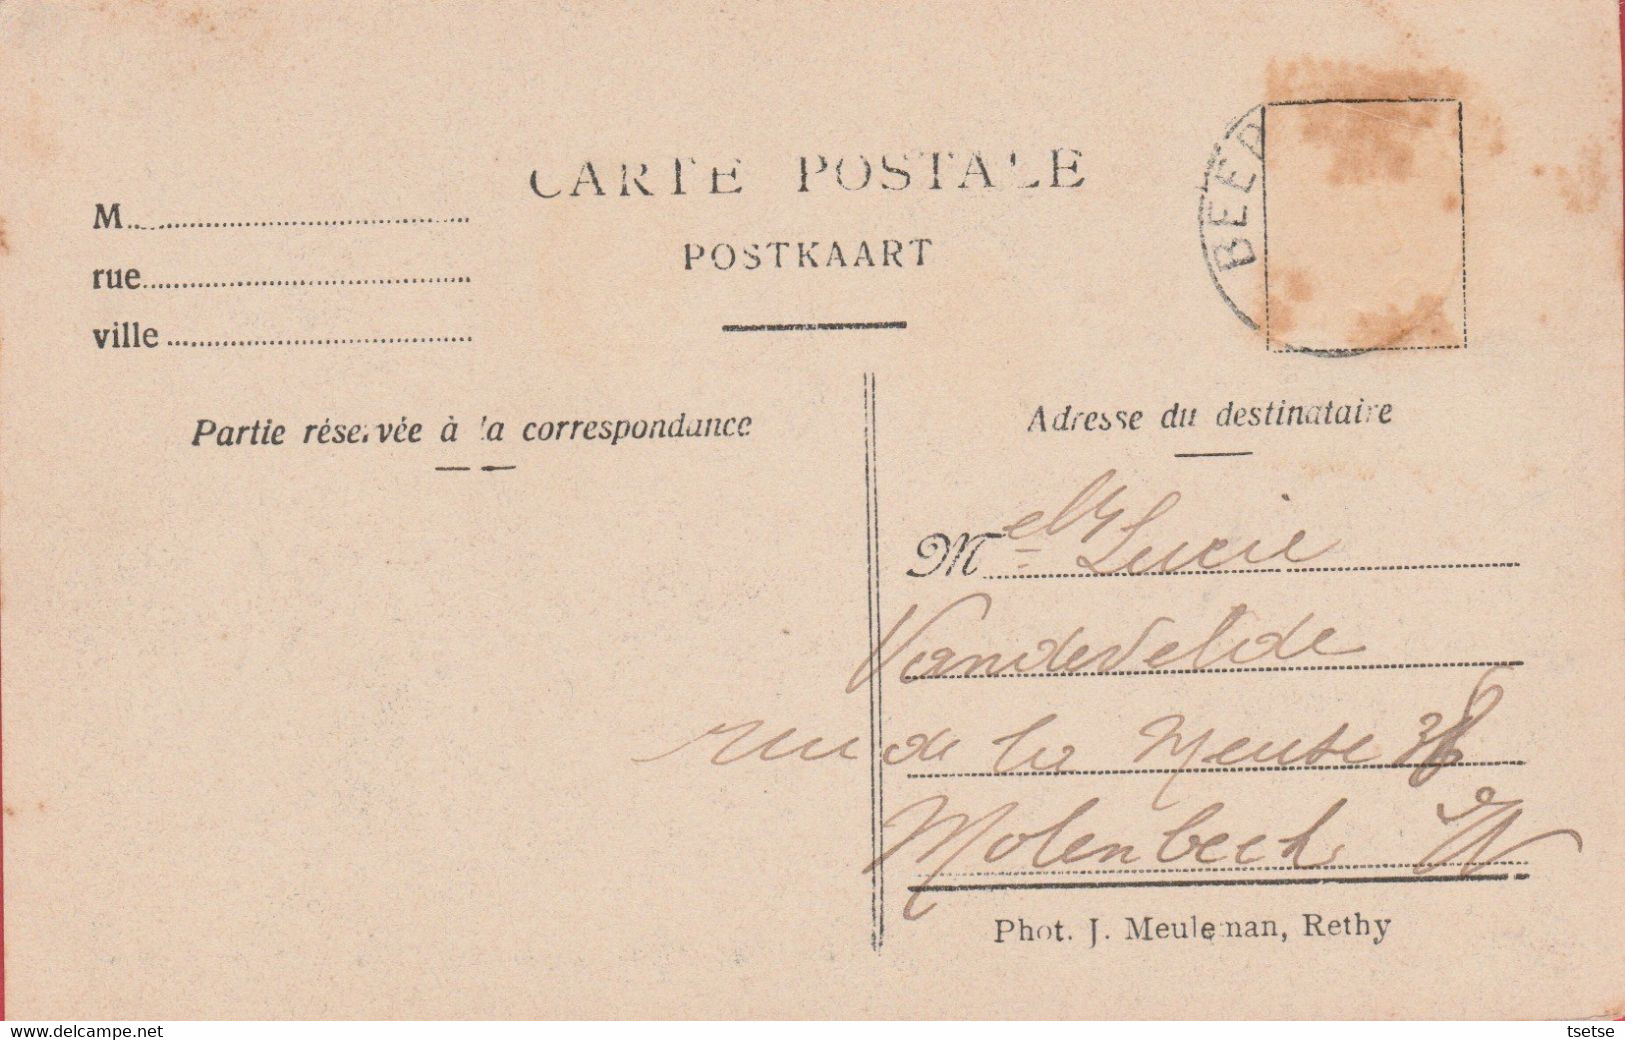 CARTE POSTALE
POSTKAART
BEER
M
rue
ville
Partie réservée à la correspondance
Adresse du destinataire
Melle Lucie
Vandevelde
rue de la Meuse
Molenbeek
Phot. J. Meuleman, Rethy
www.delcampe.net
tsetse